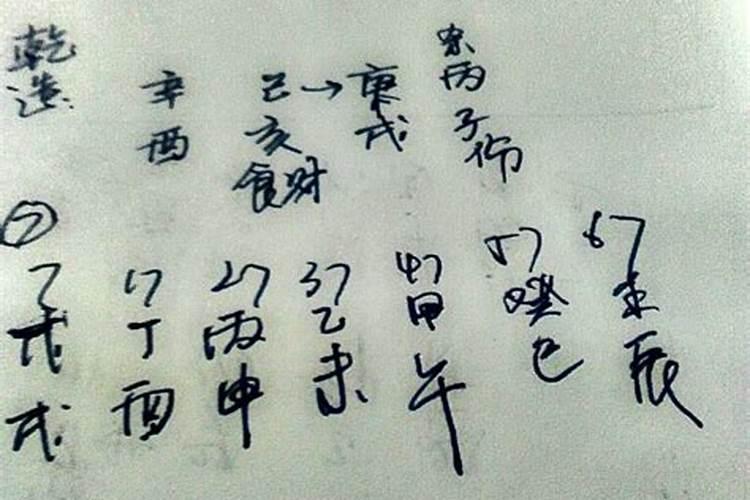 乾造
辛酉
己→庚
亥 戌
食财
丙子份
⑦
7 17 27 37 47 57 67
戊 丁 丙 乙 甲 癸 壬
戌 酉 申 未 午 巳 辰